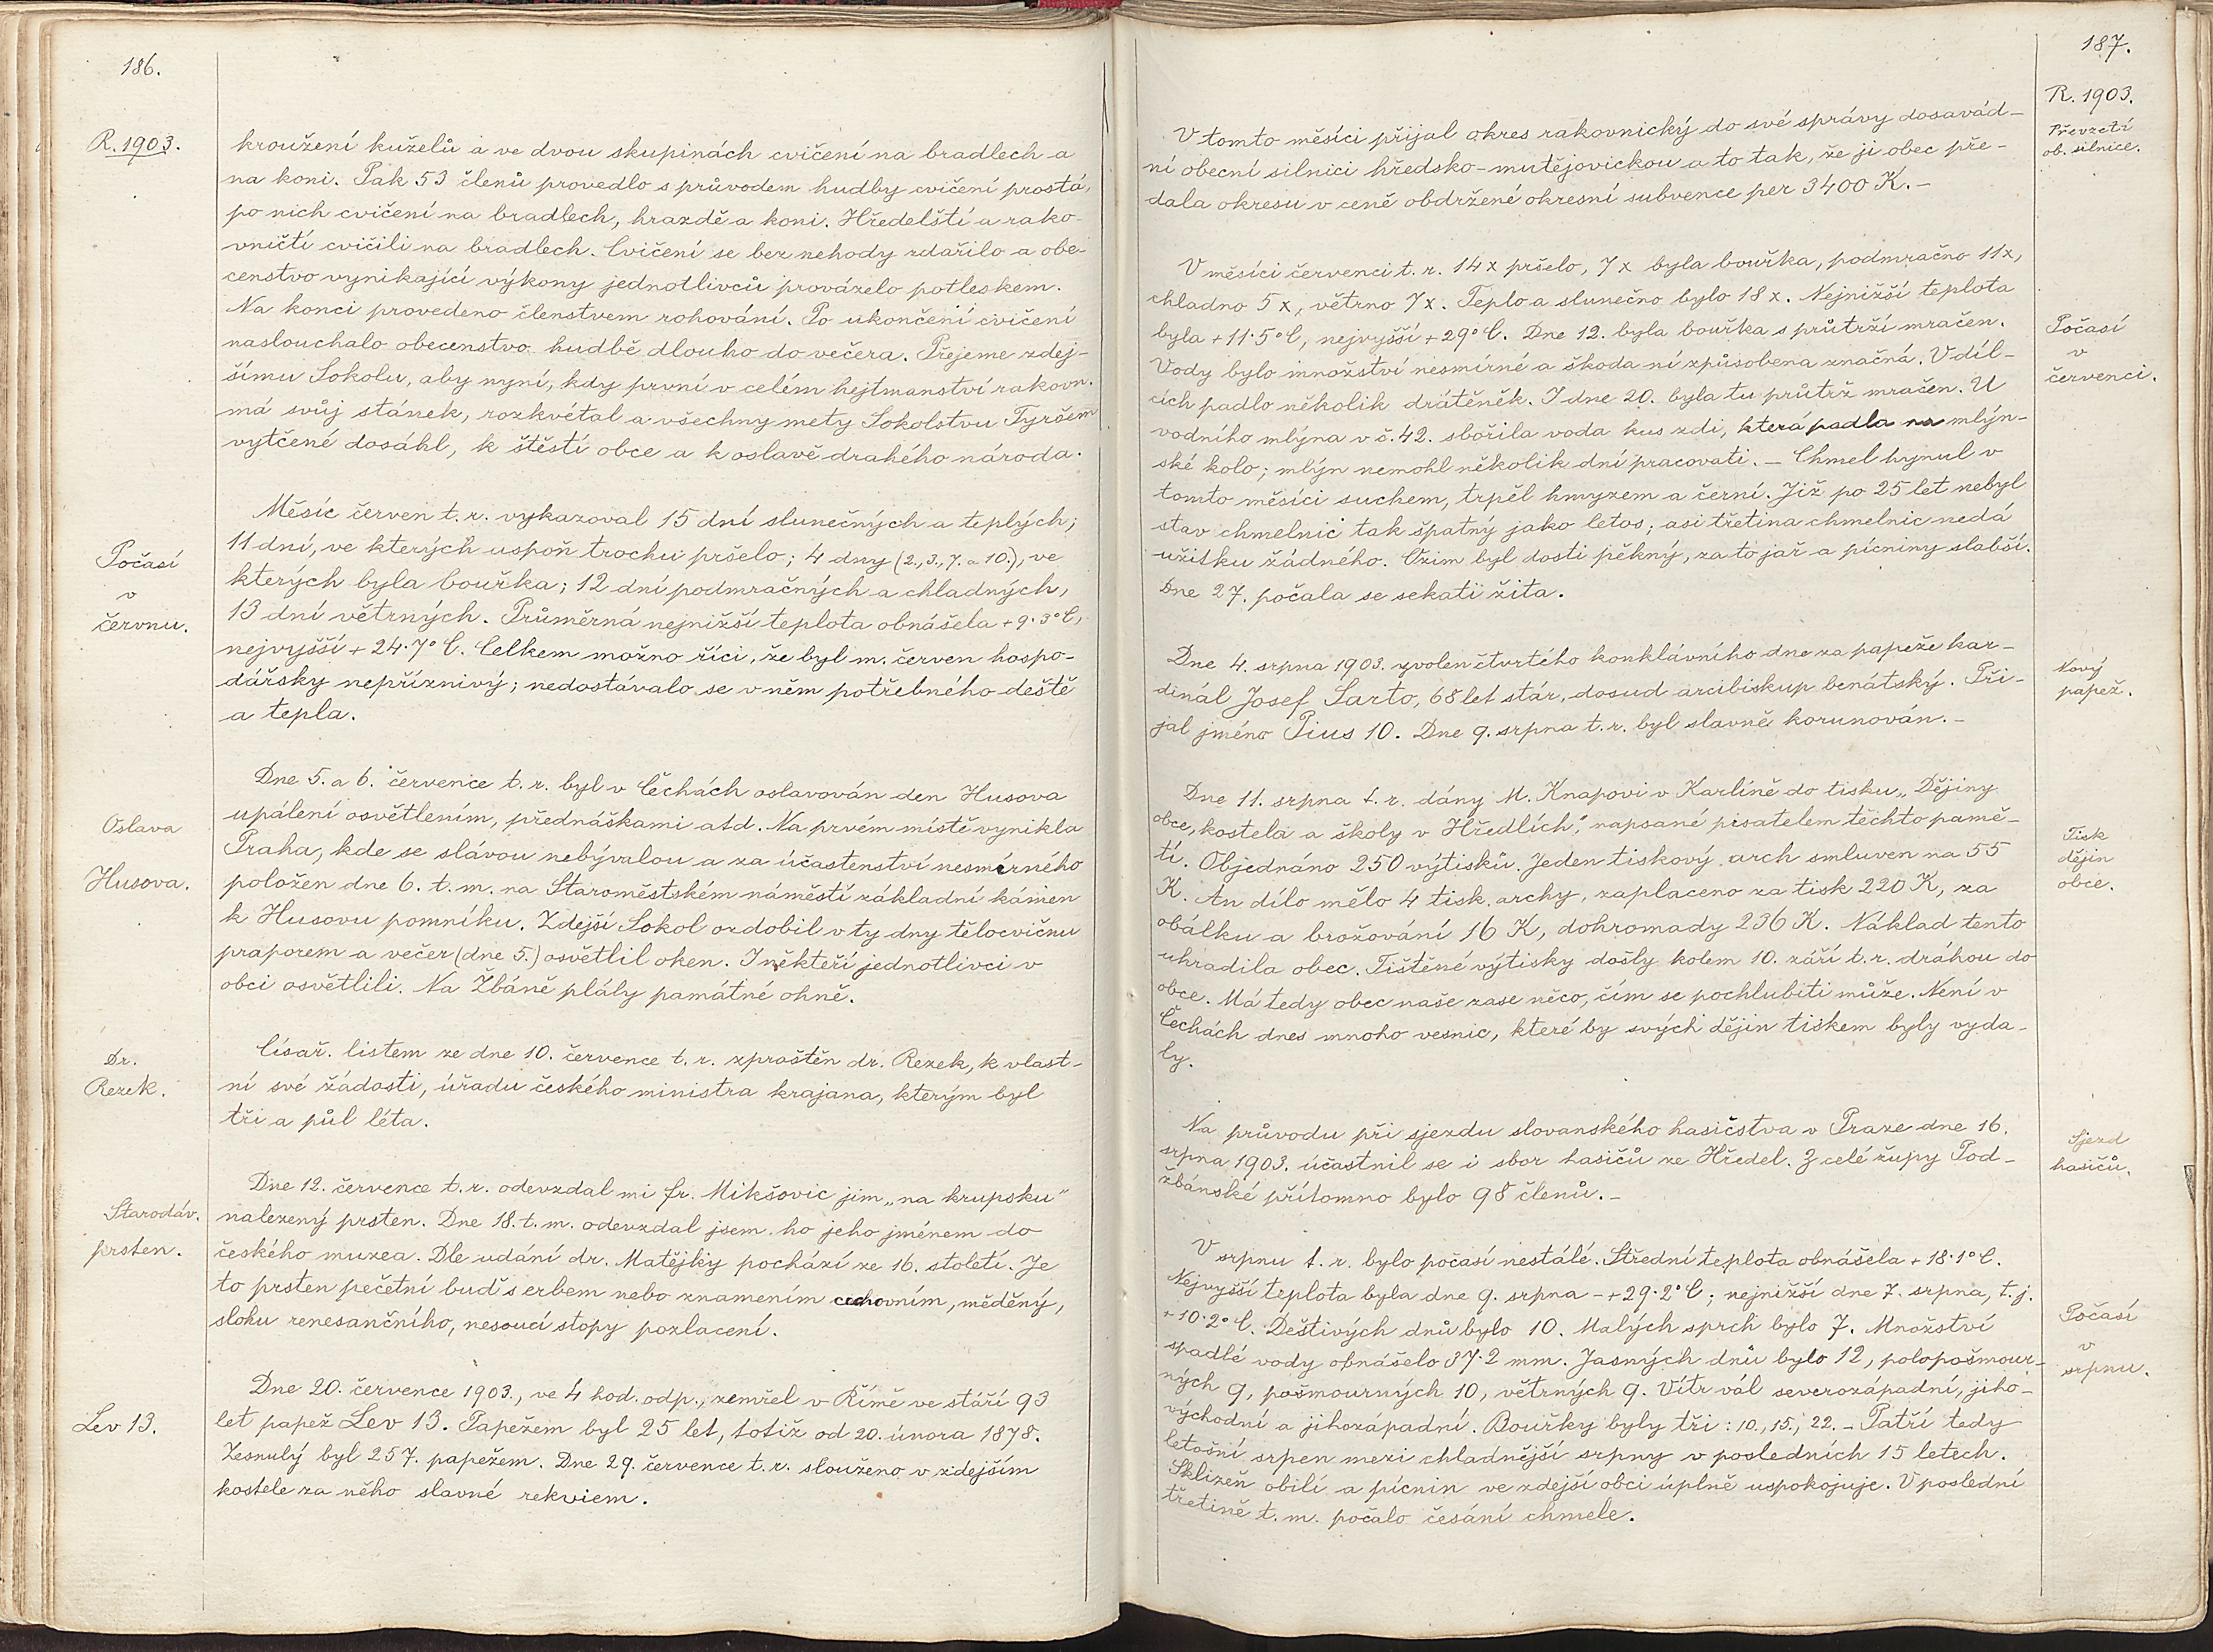 186.
R. 1903.
kroužení kuželů a ve dvou skupinách cvičení na bradlech a
na koni. Pak 53 členů provedlo s průvodem hudby cvičení prostá,
po nich cvičení na bradlech, hrazdě a koni. Hředelští a rako-
vničtí cvičili na bradlech. Cvičení se bez nehody zdařilo a obe-
censtvo vynikající výkony jednotlivců provázelo potleskem.
Na konci provedeno členstvem rohování. Po ukončení cvičení
naslouchalo obecenstvo hudbě dlouho do večera. Přejeme zdej-
šímu Sokolu, aby nyní, kdy první v celém hejtmanství rakovn.
má svůj stánek, rozkvétal a všechny mety Sokolstvu Tyršem
vytčené dosáhl, k štěstí obce a k oslavě drahého národa.
Počasí
v
červnu.
Měsíc červen t. r. vykazoval 15 dní slunečných a teplých;
11 dní, ve kterých uspoň trochu pršelo; 4 dny (2., 3., 7. a 10.), ve
kterých byla bouřka; 12 dní podmračných a chladných,
13 dní větrných. Průměrná nejnižší teplota obnášela + 9·3° C,
nejvyšší + 24·7° C. Celkem možno říci, že byl m. červen hospo-
dářsky nepříznivý; nedostávalo se v něm potřebného deště
a tepla.
Oslava
Husova.
Dne 5. a 6. července t. r. byl v Čechách oslavován den Husova
upálení osvětlením, přednáškami atd. Na prvém místě vynikla
Praha, kde se slávou nebývalou a za účastenství nesmírného
položen dne 6. t. m. na Staroměstském náměstí základní kámen
k Husovu pomníku. Zdejší Sokol ozdobil v ty dny tělocvičnu
praporem a večer (dne 5.) osvětlil oken. I někteří jednotlivci v
obci osvětlili. Na Žbáně plály památné ohně.
Dr.
Rezek.
Císař. listem ze dne 10. července t. r. zproštěn dr. Rezek, k vlast-
ní své žádosti, úřadu českého ministra krajana, kterým byl
tři a půl léta.
Starodáv.
prsten.
Dne 12. července t. r. odevzdal mi fr. Mikšovic jim „na krupsku"
nalezený prsten. Dne 18. t. m. odevzdal jsem ho jeho jménem do
českého muzea. Dle udání dr. Matějky pochází ze 16. století. Je
to prsten pečetní buď s erbem nebo znamením cechovním, měděný,
slohu renesančního, nesoucí stopy pozlacení.
Lev 13.
Dne 20. července 1903., ve 4 hod. odp., zemřel v Římě ve stáří 93
let papež Lev 13. Papežem byl 25 let, totiž od 20. února 1878.
Zesnulý byl 257. papežem. Dne 29. července t. r. slouženo v zdejším
kostele za něho slavné rekviem.
187.
R. 1903.
Převzetí
ob. silnice.
V tomto měsíci přijal okres rakovnický do své správy dosavád-
ní obecní silnici hředsko-mutějovickou a to tak, že ji obec pře-
dala okresu v ceně obdržené okresní subvence per 3400 K. –
Počasí
v
červenci.
V měsíci červenci t. r. 14 x pršelo, 7 x byla bouřka, podmračno 11 x,
chladno 5 x, větrno 7 x. Teplo a slunečno bylo 18 x. Nejnižší teplota
byla + 11·5° C, nejvyšší + 29° C. Dne 12. byla bouřka s průtrží mračen.
Vody bylo množství nesmírné a škoda ní způsobena značná. V díl-
cích padlo několik drátěněk. I dne 20. byla tu průtrž mračen. U
vodního mlýna v č. 42. sbořila voda kus zdi, která padla na mlýn-
ské kolo; mlýn nemohl několik dní pracovati. – Chmel hynul v
tomto měsíci suchem, trpěl hmyzem a černí. Již po 25 let nebyl
stav chmelnic tak špatný jako letos; asi třetina chmelnic nedá
užitku žádného. Ozim byl dosti pěkný, za to jař a pícniny slabší.
Dne 27. počala se sekati žita.
Nový
papež.
Dne 4. srpna 1903. zvolen čtvrtého konklávního dne za papeže kar-
dinál Josef Sarto, 68 let stár, dosud arcibiskup benátský. Při-
jal jméno Pius 10. Dne 9. srpna t. r. byl slavně korunován. –
Tisk
dějin
obce.
Dne 11. srpna t. r. dány M. Knapovi v Karlíně do tisku „Dějiny
obce, kostela a školy v Hředlích," napsané pisatelem těchto pamě-
tí. Objednáno 250 výtisků. Jeden tiskový arch smluven na 55
K. An dílo mělo 4 tisk. archy, zaplaceno za tisk 220 K, za
obálku a brožování 16 K, dohromady 236 K. Náklad tento
uhradila obec. Tištěné výtisky došly kolem 10. září t. r. dráhou do
obce. Má tedy obec naše zase něco, čím se pochlubiti může. Není v
Čechách dnes mnoho vesnic, které by svých dějin tiskem byly vyda-
ly.
Sjezd
hasičů.
Na průvodu při sjezdu slovanského hasičstva v Praze dne 16.
srpna 1903. účastnil se i sbor hasičů ze Hředel. Z celé župy Pod-
žbánské přítomno bylo 98 členů. –
Počasí
v
srpnu.
V srpnu t. r. bylo počasí nestálé. Střední teplota obnášela + 18·1° C.
Nejvyšší teplota byla dne 9. srpna – + 29·2° C; nejnižší dne 7. srpna, t. j.
+ 10·2° C. Deštivých dnů bylo 10. Malých sprch bylo 7. Množství
spadlé vody obnášelo 37·2 mm. Jasných dnů bylo 12, polopošmour-
ných 9, pošmourných 10, větrných 9. Vítr vál severozápadní, jiho-
východní a jihozápadní. Bouřky byly tři: 10., 15., 22. – Patří tedy
letošní srpen mezi chladnější srpny v posledních 15 letech.
Sklizeň obilí a pícnin ve zdejší obci úplně uspokojuje. V poslední
třetině t. m. počalo česání chmele.